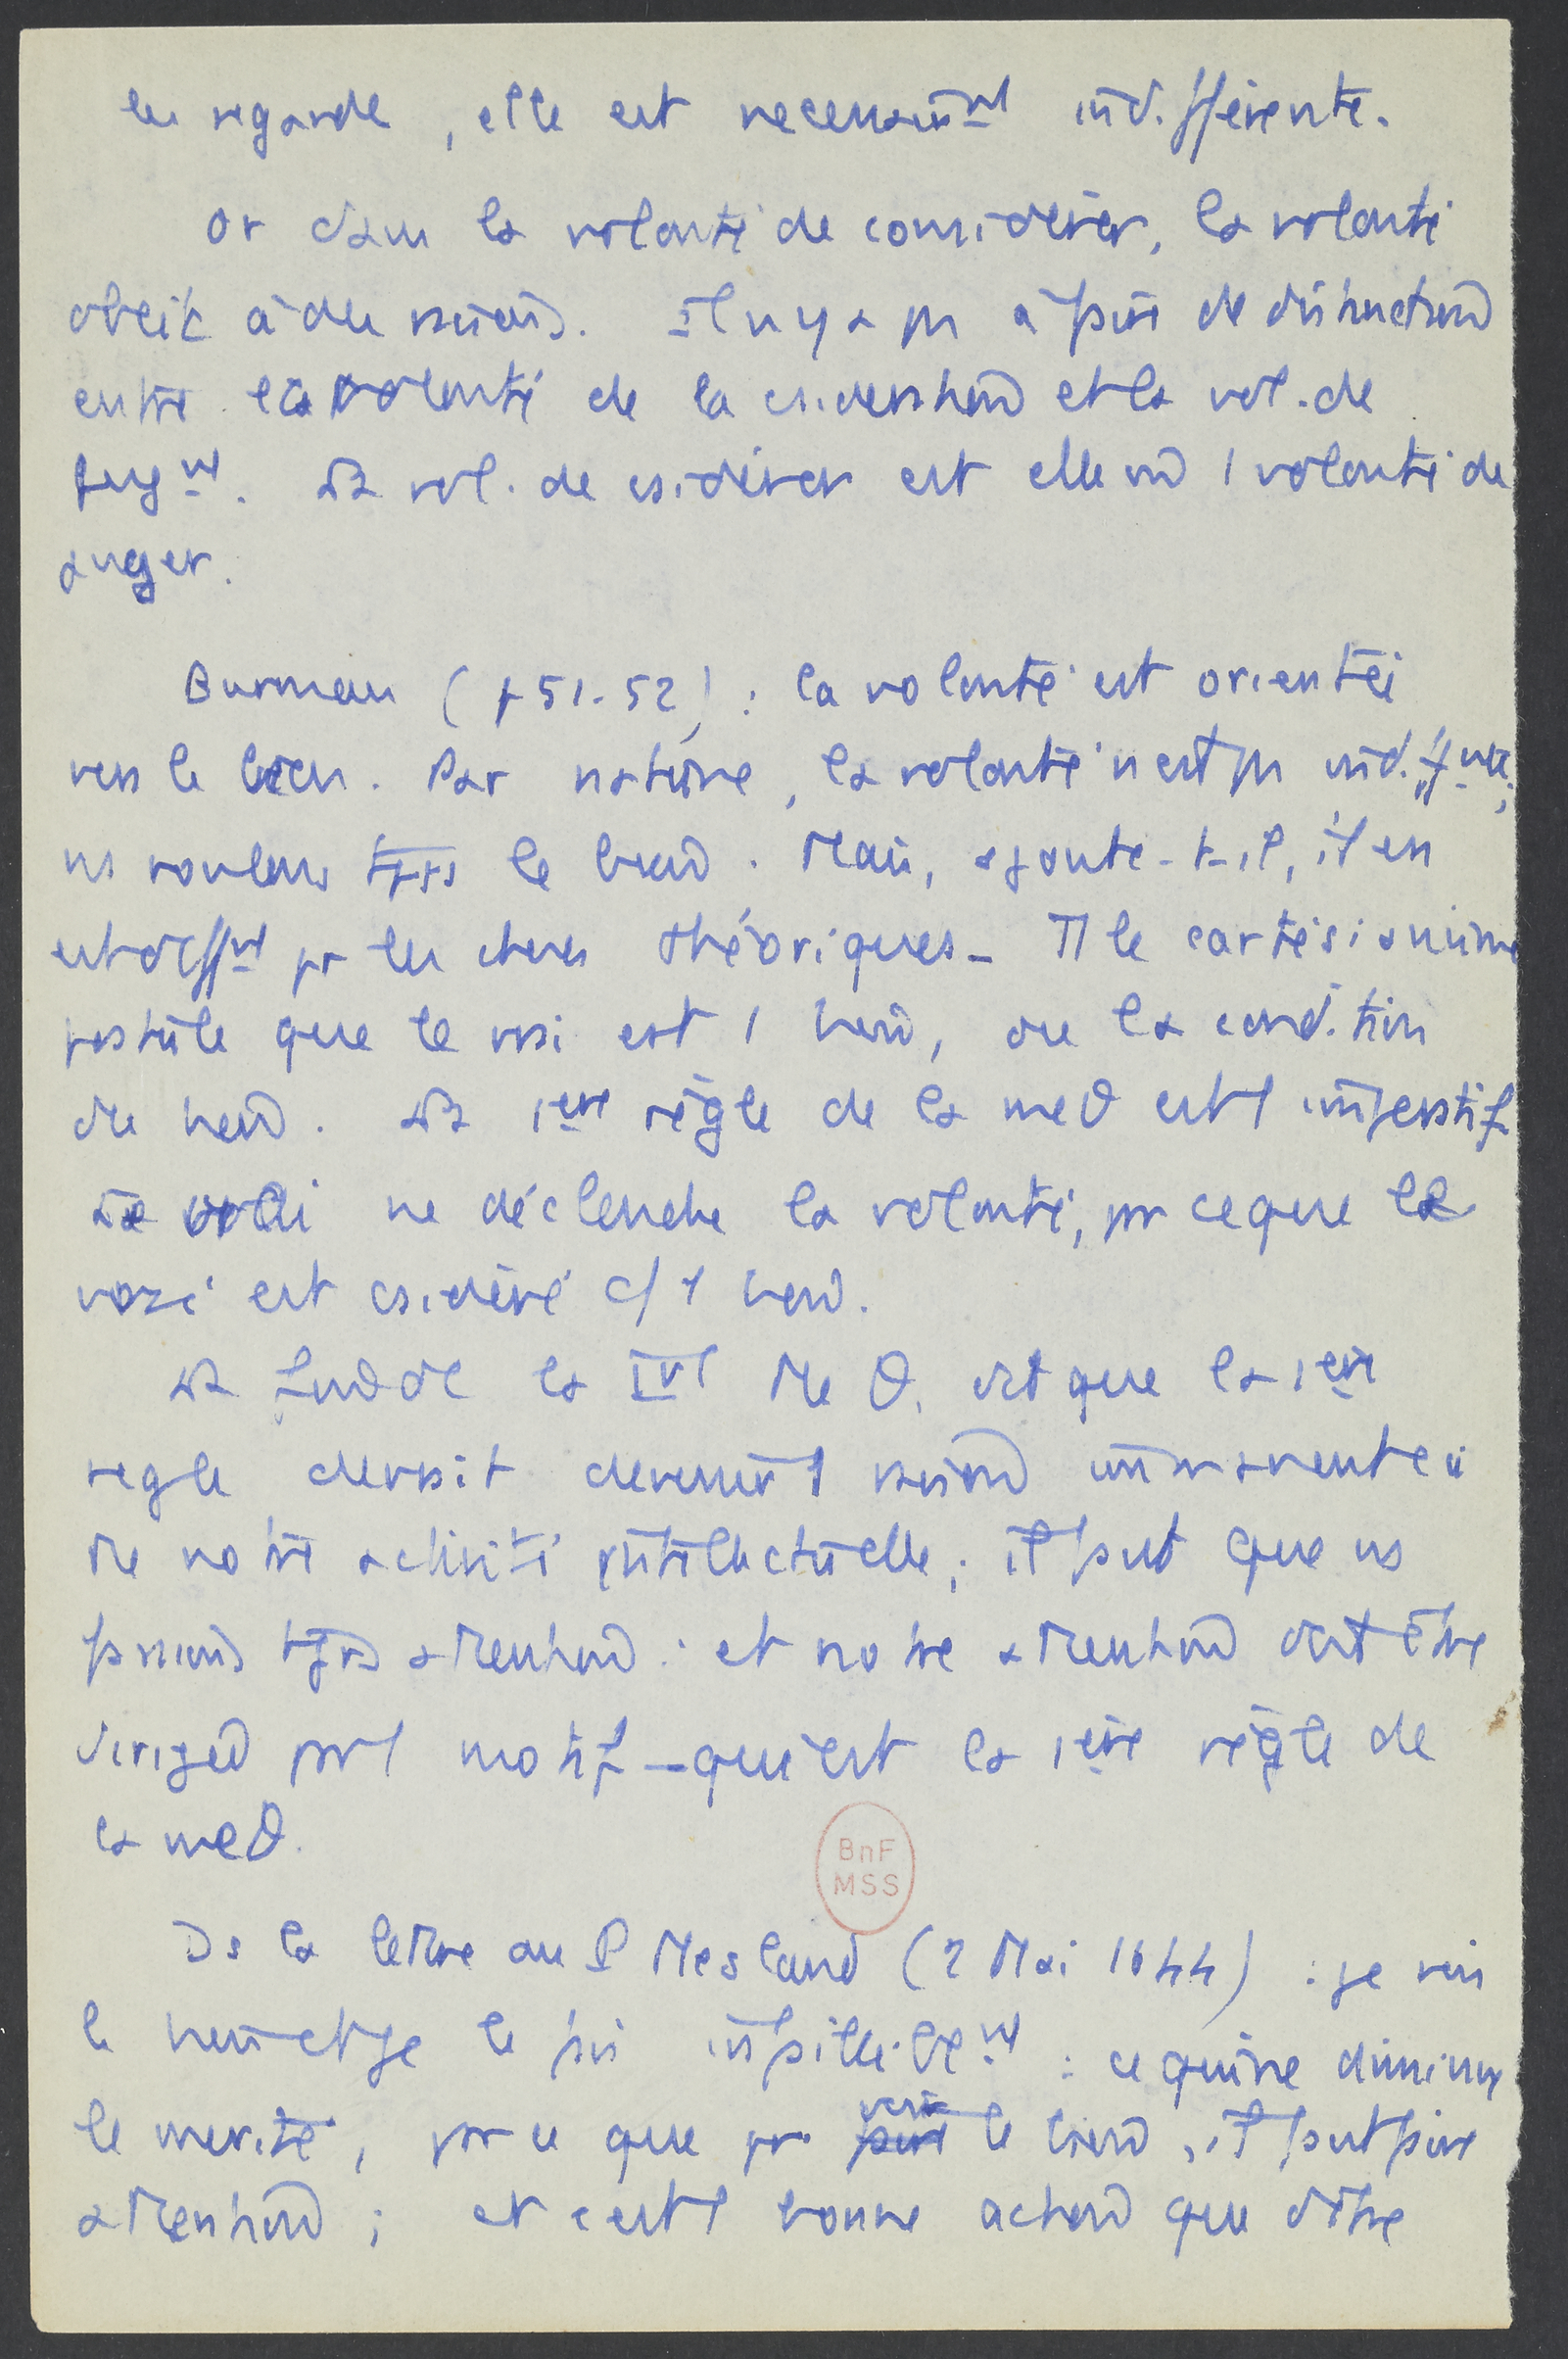 les regarde, elle est necessair^mt indifférente.
Or dans la volonté de considérer, la volonté
obéit à des raisons. Il n'y a pas à faire de distinction
entre la volonté de la csideration et la vol. de
jug^mt. La vol. de csidérer est elle m̂ 1 volonté de
juger.
Burman (p 51-52) : la volonté est orientée
vers le bien. Par nature, la volonté n'est pas indiff^nte;
ns voulons tjrs le bien. Mais, ajoute-t-il, il en
est diff^mt pr les choses théoriques - Tt le cartésianisme
postule que le vrai est 1 bien, ou la condition
du bien. La 1ere règle de la meθ est 1 impératif
Le vrai ne déclenche la volonté, parce que le
vrai est csidéré c/ 1 bien.
La fin de la IV M θ. est que la 1ere
regle devrait devenir 1 raison immanente à
de notre activité intellectuelle; il faut que ns
fassions tjrs attention : et notre attention doit être
dirigée par 1 motif - qui est la 1ere règle de
la meθ.
BnF
MSS
Ds la lettre au P Mesland (2 Mai 1644) : je vois
le bien et je le fais infailliblem^t : ce qui ne diminue
le mérite, parce que pr faire voir le bien, il faut faire
attention; et c'est 1 bonne action que d'être